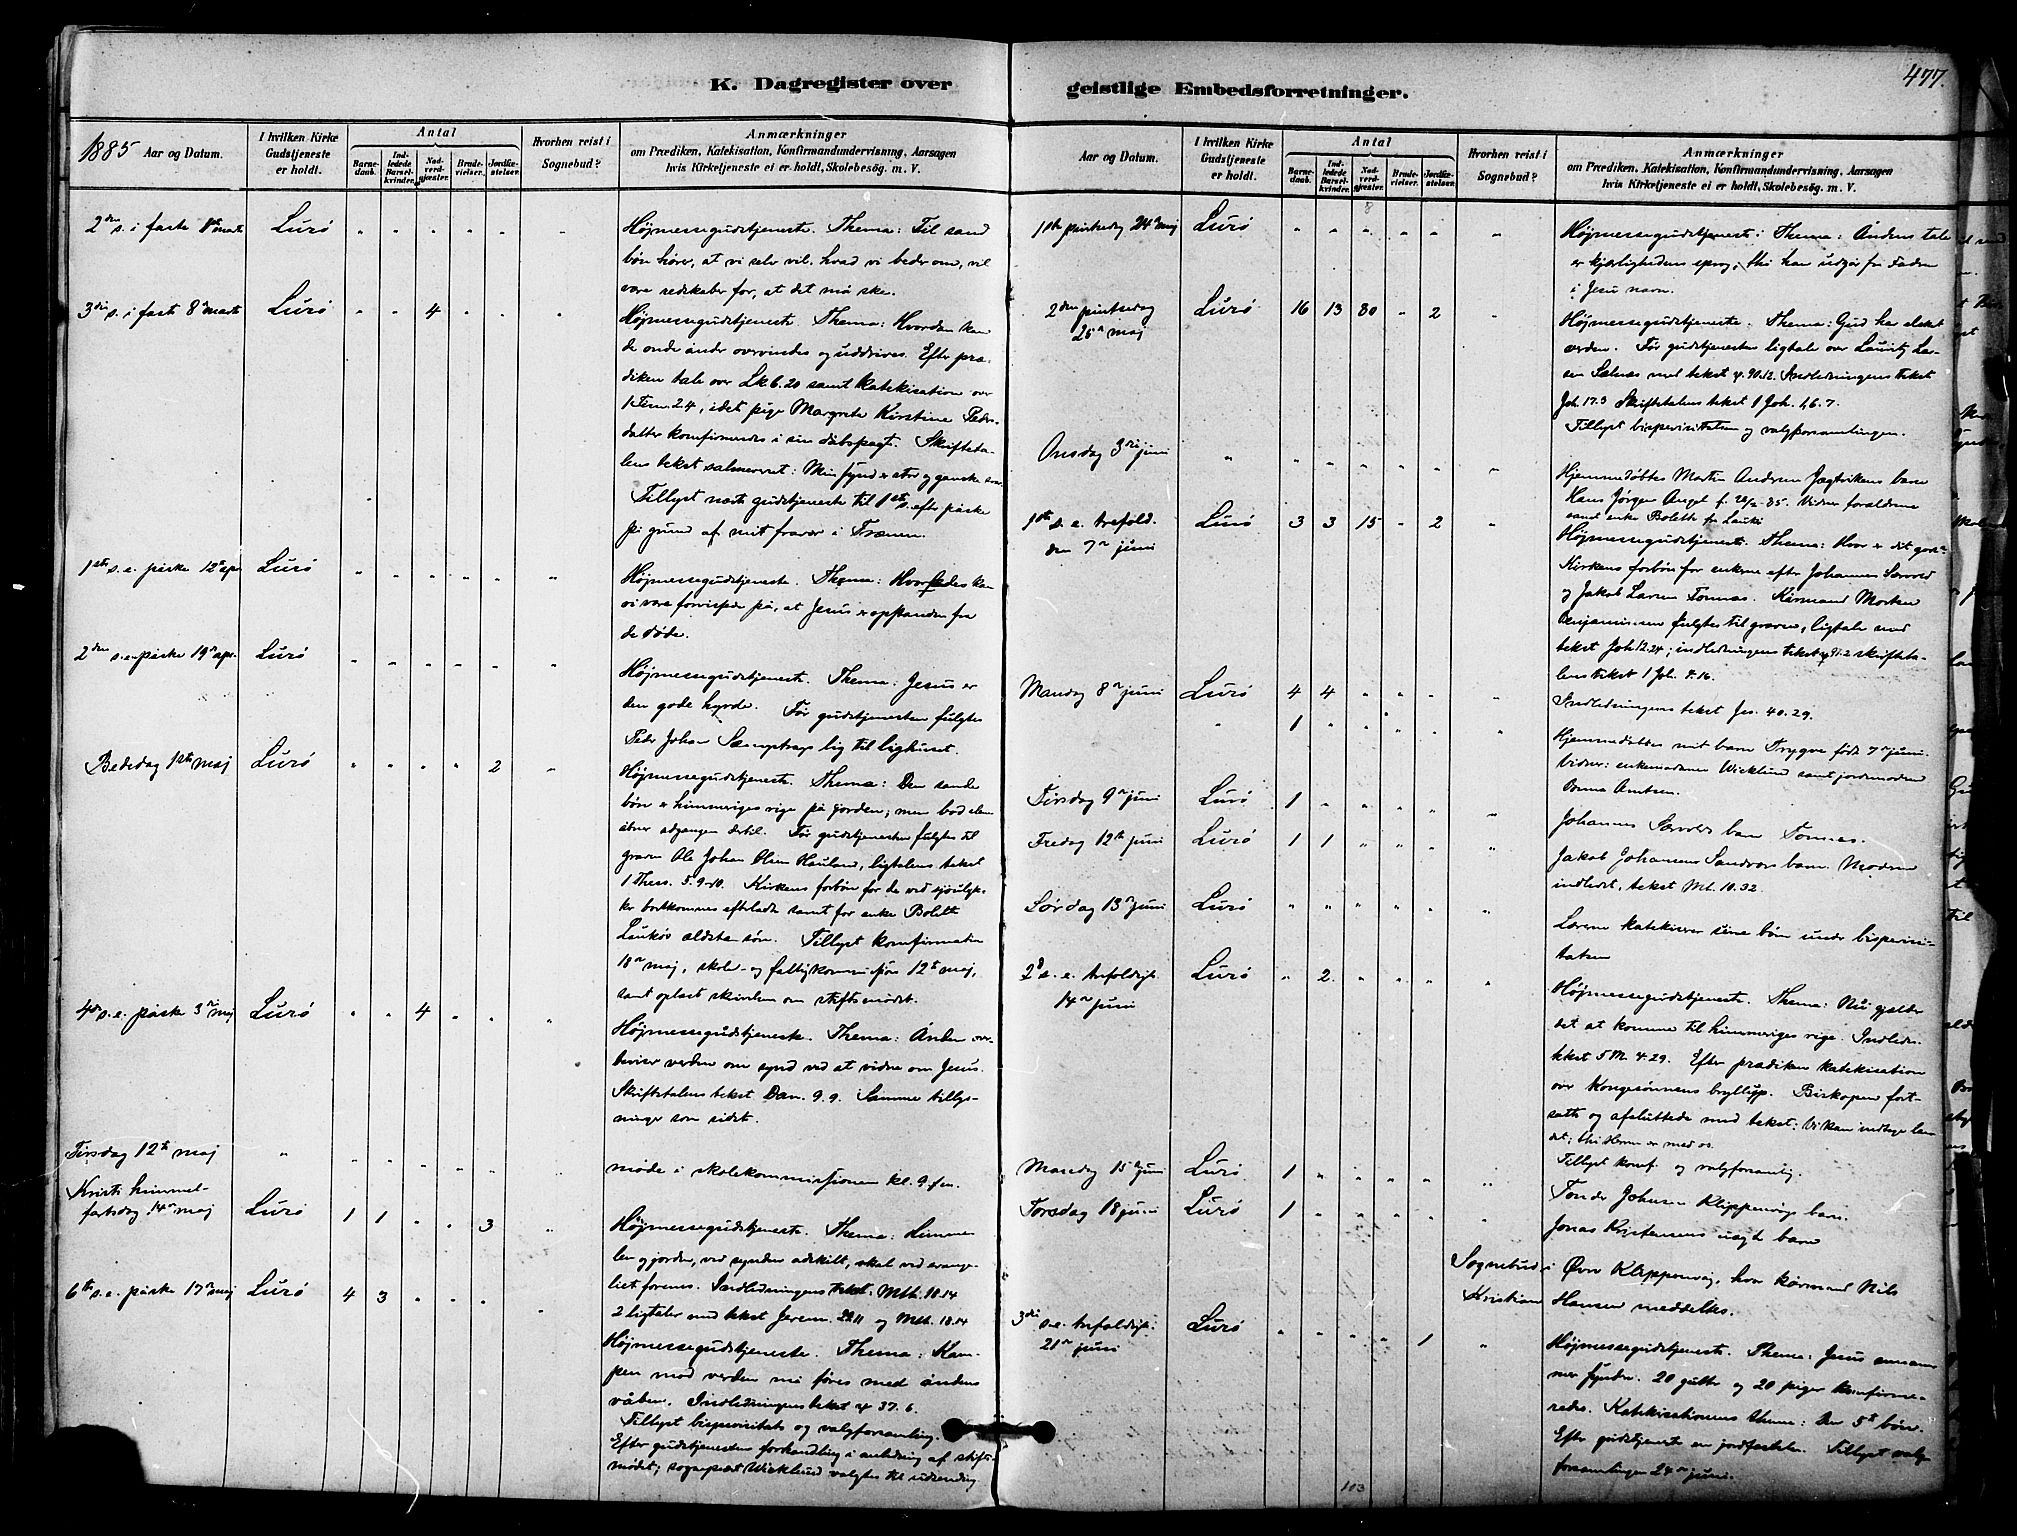 477.
K. Dagregister over geistlige Embedsforretninger.
1885 Aar og Datum.
I hvilken Kirke Gudstjeneste er holdt.
Antal
Barne-daab.
Ind-ledede Barsel-kvinder.
Nad-verd-gjæster.
Brude-vielser.
Jordfæ-stelser.
Hvorhen reist i Sognebud?
Anmærkninger
om Prædiken, Katekisation, Konfirmandundervisning, Aarsagen
hvis Kirketjeneste ei er holdt, Skolebesög. m. V.
2den s. i faste 1ste marts Lurö " " " " " " Höjmessegudstjeneste. Thema: Til sand
bön hörer, at vi selv vil, hvad vi beder om, vil
være redskaber for, at det må ske.
3die s. i faste 8de marts Lurö " " 4 " " " Höjmessegudstjeneste. Thema: Hvordan kan
de onde ånder overvindes og uddrives. Efter præ-
diken tale over Lk 6.20 samt katekisation over
1 Tim. 2.4, idet pige Margrete Kirstine Peders-
datter konfirmerdes i sin dåbspagt. Skrifteta-
lens tekst salmeverset: Min synd er stor og ganske svar
Tillyst næste gudstjeneste til 1ste s. efter påske
på grund af mit fravær i Trænen.
1ste s. e. påske 12te apr. Lurö " " " " " " Höjmessegudstjeneste. Thema: Hvorledes kan
vi være forvissede på, at Jesus er opstanden fra
de döde.
2den s. e. påske 19de apr. Lurö " " " " " " Höjmessegudstjeneste. Thema: Jesus er
den gode hyrde. För gudstjenesten fulgtes
Peder Johan lig til lighuset.
Bededag 1ste maj Lurö " " " " 2 " Höjmessegudstjeneste. Thema: Den sande
bön er himmeriges rige på jorden; men bod alene
åbner adgangen dertil. För gudstjenesten fulgtes til
graven Ole Johan Olsen Hauland, ligtalens tekst
1 Thess. 5.9-10. Kirkens forbön for de ved sjöulyk-
ker bortkomnes efterladte samt for enke Bolette
Laukös ældste sön. Tillyst konfirmation
18de maj, skole- og fattigkommission 12te maj,
samt oplæst skrivelsen om stiftsmödet.
4de s. e. påske 3de maj Lurö " " 4 " " " Höjmessegudstjeneste. Thema: Ånden over-
beviser verden om synd ved at vidne om Jesus.
Skriftetalens tekst Dan. 9.9. Samme tillys-
ninger som sidst.
Tirsdag 12te maj " " " " " " möde i skolekommissionen kl. 9 fm.
Kristi himmel-
fartsdag 14de maj Lurö 1 1 " " 3 " Höjmessegudstjeneste. Thema: Himme-
len og jorden, ved synden adskilt, skal ved evange-
liet forenes. Indledningens tekst. Mtth. 18.14
2 ligtaler med tekst Jerem. 29.11 og Mtth. 18.14
6te s. e. påske 17de maj Lurö 4 3 " " " " Höjmessegudstjeneste. Thema: Kam-
pen mod verden må föres med åndens
våben. Indledningens tekst ψ 37.6.
Tillyst bispevisitats og valgforsamling.
Efter gudstjenesten forhandling i anledning af stifts-
mödet; sogneprest Wicklund valgtes til udsending
Aar og Datum.
I hvilken Kirke Gudstjeneste er holdt.
Antal
Barne-daab.
Ind-ledede Barsel-kvinder.
Nad-verd-gjæster.
Brude-vielser.
Jordfæ-stelser.
Hvorhen reist i Sognebud?
Anmærkninger
om Prædiken, Katekisation, Konfirmandundervisning, Aarsagen
hvis Kirketjeneste ei er holdt, Skolebesög. m. V.
8
1ste pintsedag 24de maj Lurö " " " " " " Höjmessegudstjeneste: Thema: Åndens tale
er kjærlighedens sprog; thi han udgår fra Fadren
i Jesu navn.
2den pintsedag
25de maj Lurö 16 13 80 " 2 " Höjmessegudstjeneste. Thema: Gud har elsket
verden. För gudstjenesten ligtale over Lauritz Lar-
sen Selnæs med tekst ψ 90.12. Indledningens tekst
Joh. 17.3 Skriftetalens tekst 1 Joh. 1,6.7.
Tillyst bispevisitatsen og valgforsamlingen.
Onsdag 3die juni " " " " " " Hjemmedöbtes Morten Andreas Jægtvikens barn
Hans Jörgen Angel f. 28/2 85. Vidner forældrene
samt enke Bolette fra Laukö
1ste s. e. trefold.
den 7de juni Lurö 3 3 15 " 2 " Höjmessegudstjeneste. Thema: Hvor er dit gods.
Kirkens forbön for enkerne efter Johannes
og Jakob Larsen Tonnæs. Kirmand Morten
Benjaminsen fulgtes til graven, ligtale med
tekst Joh 12.24; indledningens tekst ψ 91.2 skrifteta-
lens tekst 1 Joh. 4.16.
Mandag 8de juni Lurö 4 4 " " " " Indledningens tekst Jes. 40.29.
" 1 " " " " " Hjemmedöbtes mit barn Trygve födt 7de juni.
Vidner: enkemadame Wicklund samt jordemoderen
Arntsen.
Tirsdag 9de juni Lurö 1 " " " " " Johannes barn Tonnæs.
Fredag 12te juni Lurö 1 1 " " " " Jakob Johansens Sandvær barn. Moderen
indledt, tekst Mt. 10.32.
Lördag 13de juni Lurö " " " " " " Læreren katekiserer sine börn under bispevisi-
tatsen
2d s. e. trefoldigh.
14de juni Lurö " 2 " " " " Höjmessegudstjeneste. Thema: Nu gjælder
det at komme til himmeriges rige. Indledn.
tekst 5 M. 4.29. Efter prædiken katekisation
over Kongesönnens bryllup. Biskopen fort-
satte og afsluttede med tekst: Vi kan indtage lan-
det; thi Herren er med os.
Tillyst konf. og valgforsamlig.
Mandag 15de juni Lurö 1 " " " " " Tonder Johnsen Klippenvågs barn.
Torsdag 18 juni Lurö 1 " " " " " Jonas Kristensens uægte barn
Sognebud i Övre Klippenvåg, hvor kårmand Nils
Kristian Hansen meddeltes.
3die s. e. trefoldigh.
21de juni Lurö " " " " 1 " Höjmessegudstjeneste. Thema: Jesus annam-
mer syndere. 20 gutter og 20 piger konfirme-
redes. Katekisationens thema: Den 5te bön.
Efter gudstjeneste en jordfæstelse. Tillyst valg-
forsamlingen 24de juni.
103